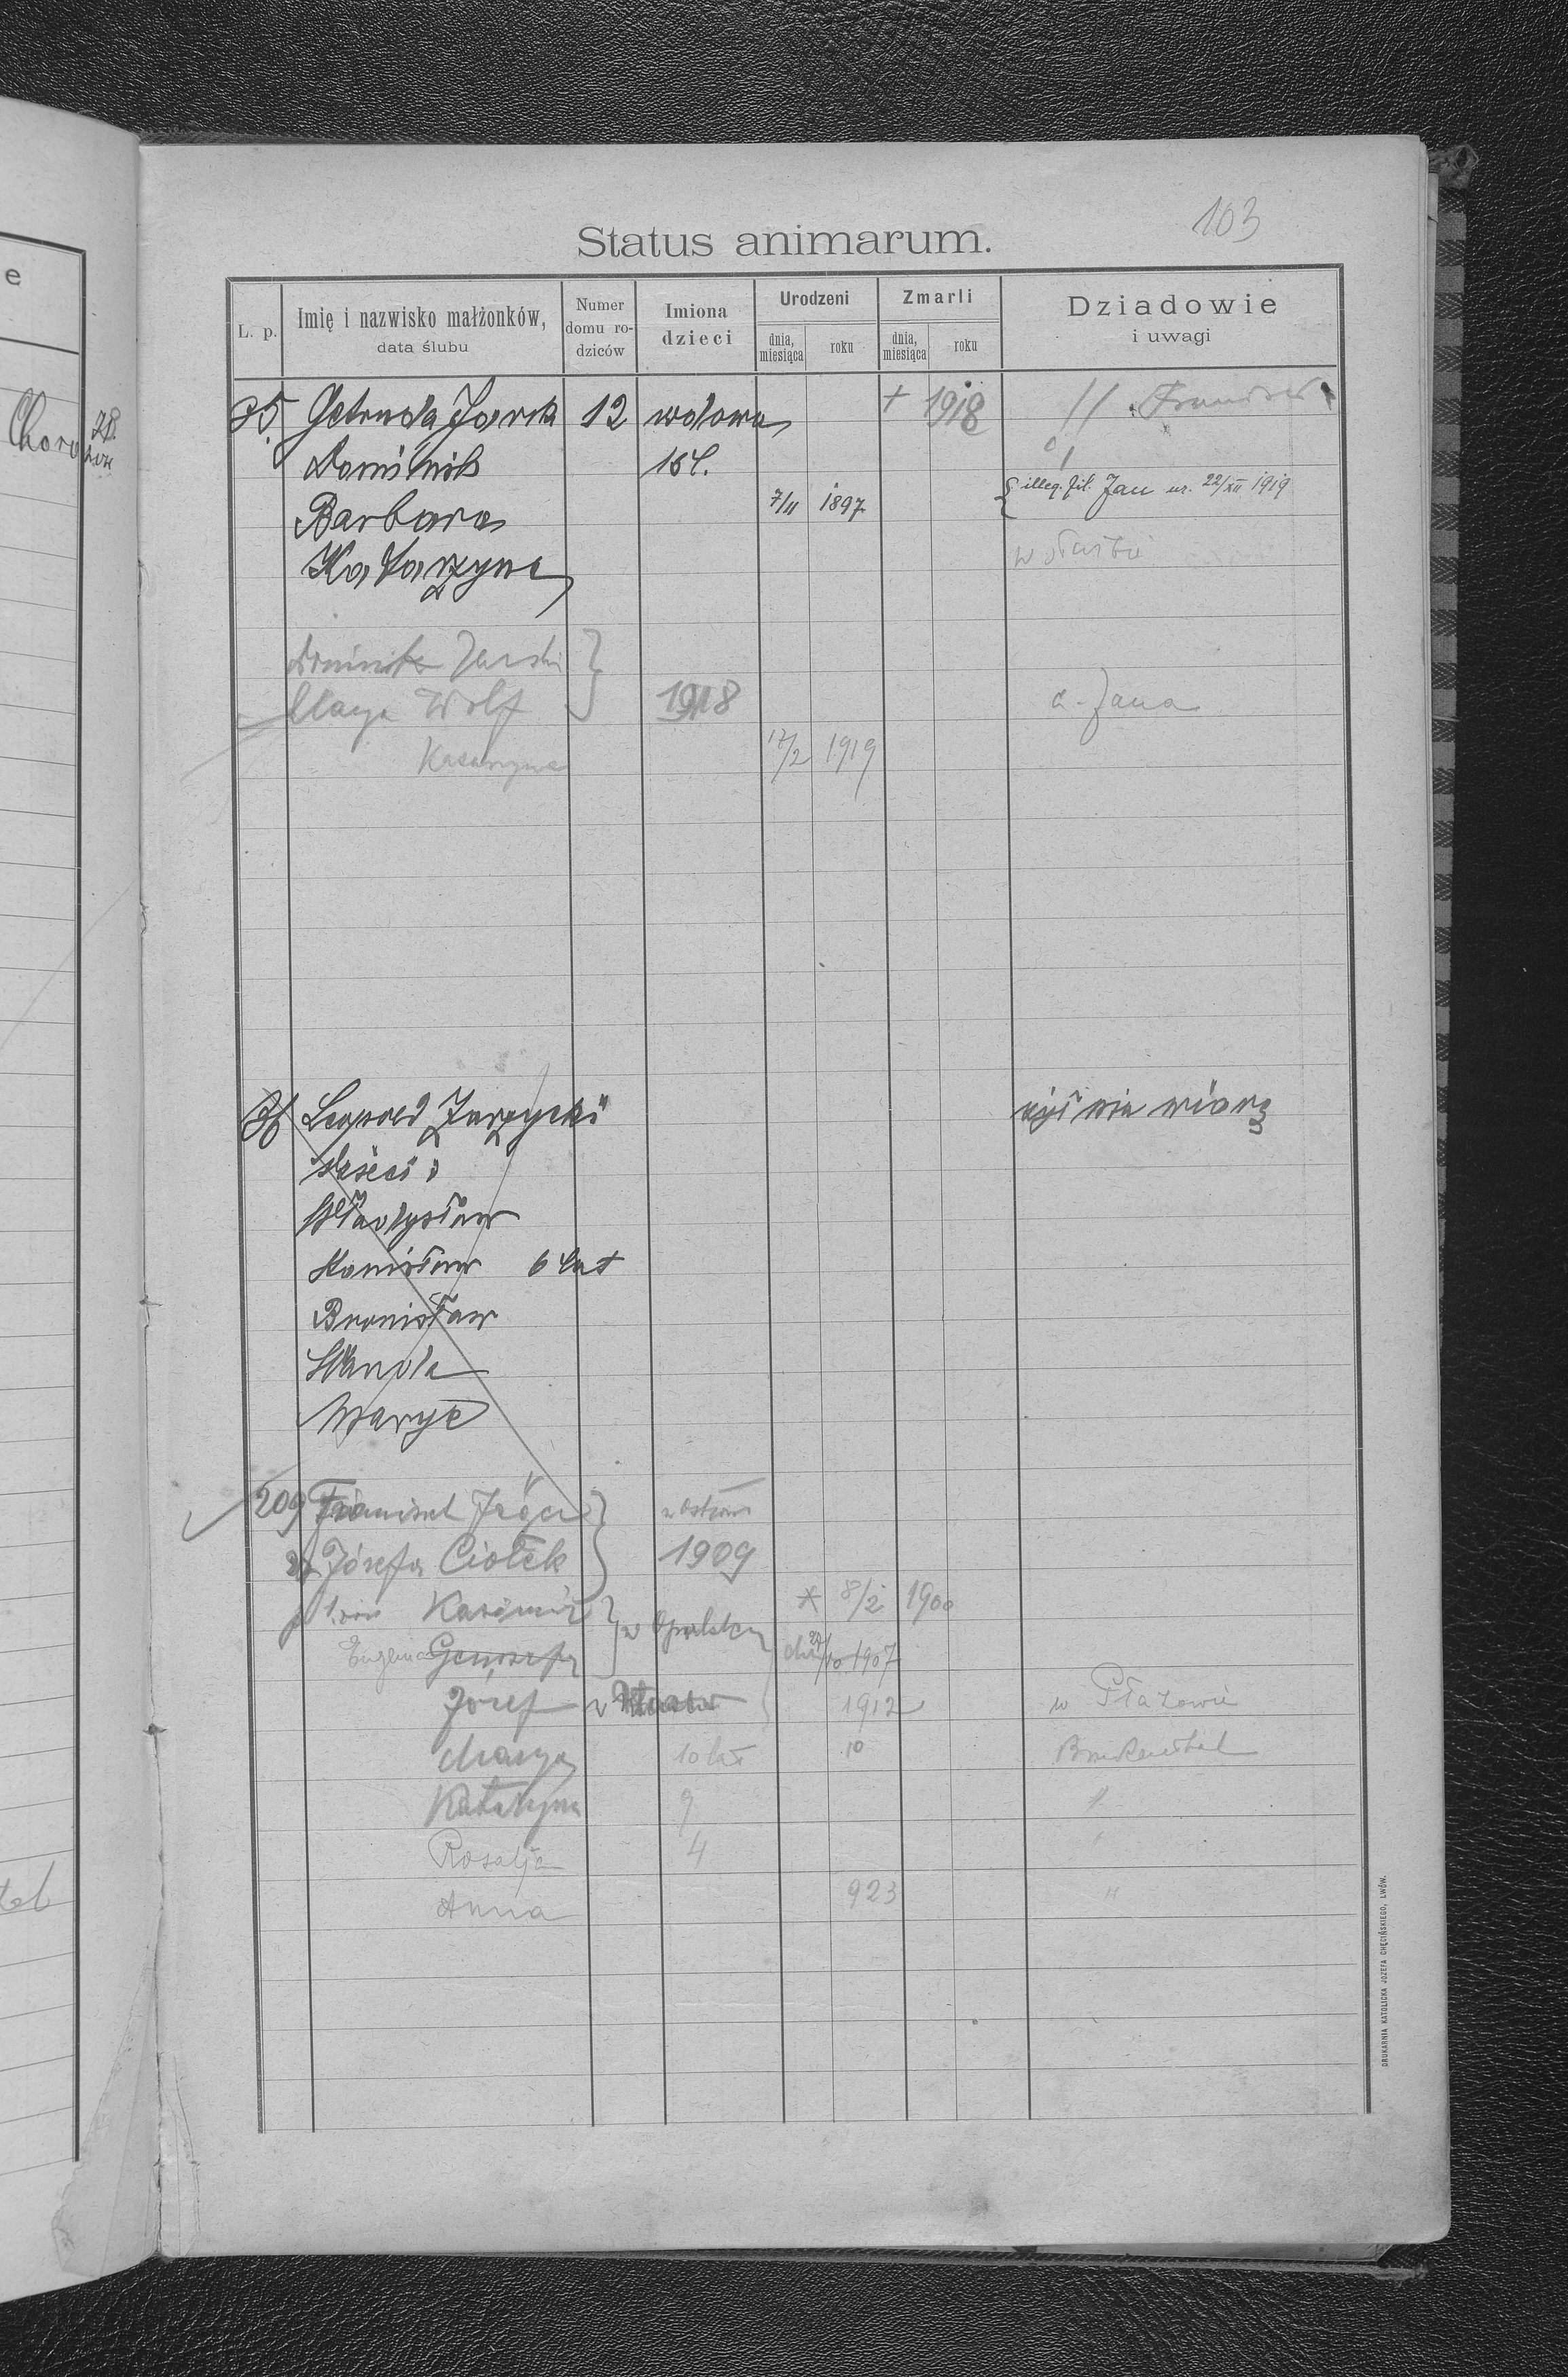 e
Chor
28.
tel
103
Status animarum.
L. p.
Imię i nazwisko małżonków,
data ślubu
Numer
domu ro-
dziców
Imiona
dzieci
Urodzeni
dnia,
miesiąca
roku
Zmarli
dnia,
miesiąca
roku
Dziadowie
i uwagi
35. Getruda Jarska 12 wdowa + 1918 //
Dominik 16 l.
Barbara 7/II 1897 { illeg. fil. Jan ur. 22/XII 1919
Katarzyna
Dominik Jarski }
Marya Wolf 1918 c. Jana
Katarzyna 12/2 1919
Leopold Jarzycki
dzieci:
Władysław
Stanisław 6 lat
Bronisław
Wanda
Marye
209 Franciszek
Józefa Ciołek 1909
Kazimierz * 8/2 1900
Eugenia Genowefa 10 1907
Józef 1912 w Płazowie
Marya 10 lat 10 Bruckenthal
Katarzyna 9 "
Rosalja 4 "
Anna 923 "
DRUKARNIA KATOLICKA JOZEFA CHĘCIŃSKIEGO, LWÓW.